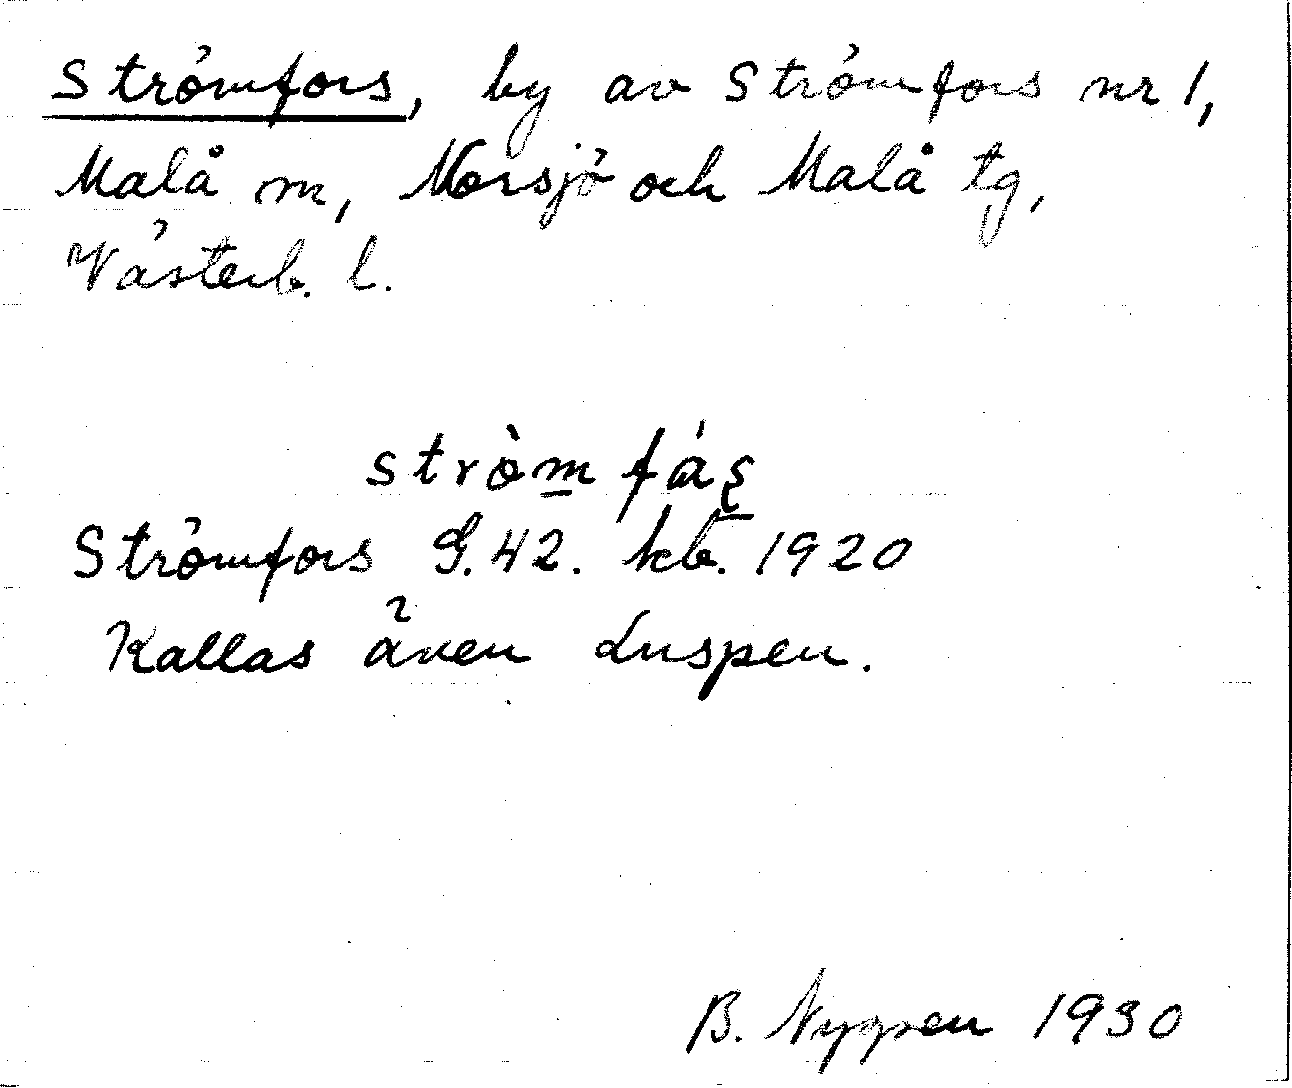 Strömfors, by av Strömfors nr 1,
Malå sn, Norsjö och Malå tg,
Västerb. l.
stròm̲fás̲
Strömfors G.42. kb. 1920
Kallas även Luspen.
B. Nygren 1930